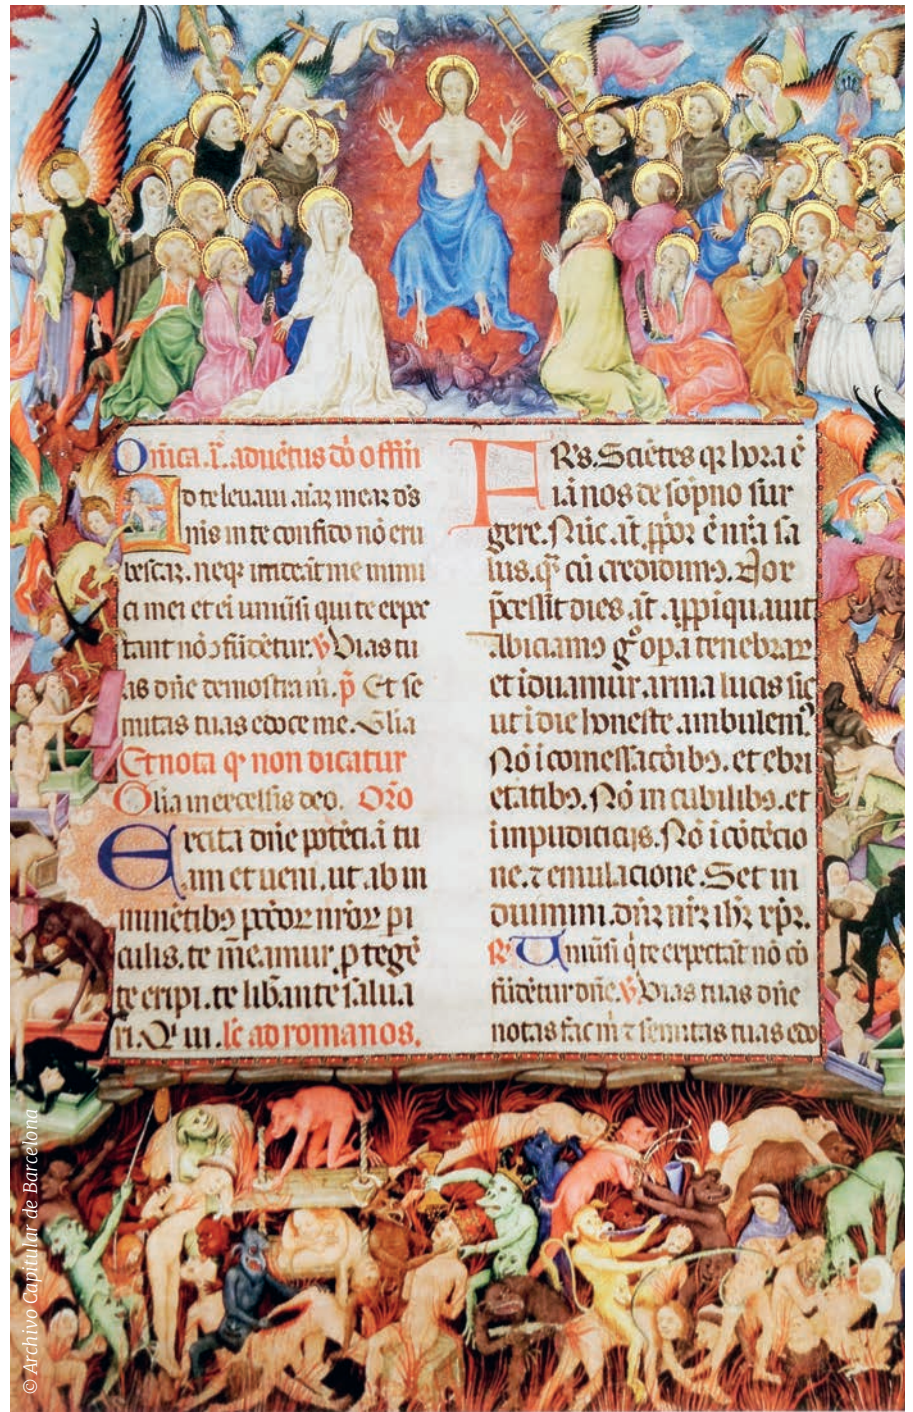 Dñica .i. aduētus dñi offm
Ad te leuaui aīaz meaz d's
m's in te confido nō eru
bescaz. neqz irrideāt me inimi
ci mei et eī uniūsi qui te expec
tant nō ɔfūdētur. v̄ Vias tu
as dñe demostra m̄. p̄ Et se
mitas tuas edoce me. Glīa
Et nota qᷓ non dicatur
Glīa in excelsis deo. Orō
Excita dñe potēciā tu
am et ueni. ut ab in
minētibꝫ pcc̄oꝝ nr̄oꝝ pi
culis. te m̄eamur. ꝓtegēte
te eripi. te lib̄ante salua
ri. Qi uiu. lc̄ ad romanos.
FRs. Sciētes qꝛ hora ē
iā nos de sōpno sur
gere. Nūc. aūt. ꝓpꝛ ē nr̄a sa
lus. qᷓ cū credidimꝰ. Nox
p̄cessit dies. aūt. appīquauit
Abiciamꝰ gͦ opa tenebraꝝ
et īduamur arma lucis sic
ut ī die honeste ambulemꝰ.
Nō ī comessacōibꝫ. et ebri
etatibꝫ. Nō in cubilibꝫ. et
impudicicijs. Nō ī cōtēcio
ne. ⁊ emulacione. Set in
duimini. dñꝫ nr̄ꝫ ihꝫ xp̄ꝫ.
R̄. Uniūsi q̇ te expectāt nō cō
fūdētur dñe. v̄ Vias tuas dñe
notas fac m̄ ⁊ semitas tuas edo
© Archivo Capitular de Barcelona